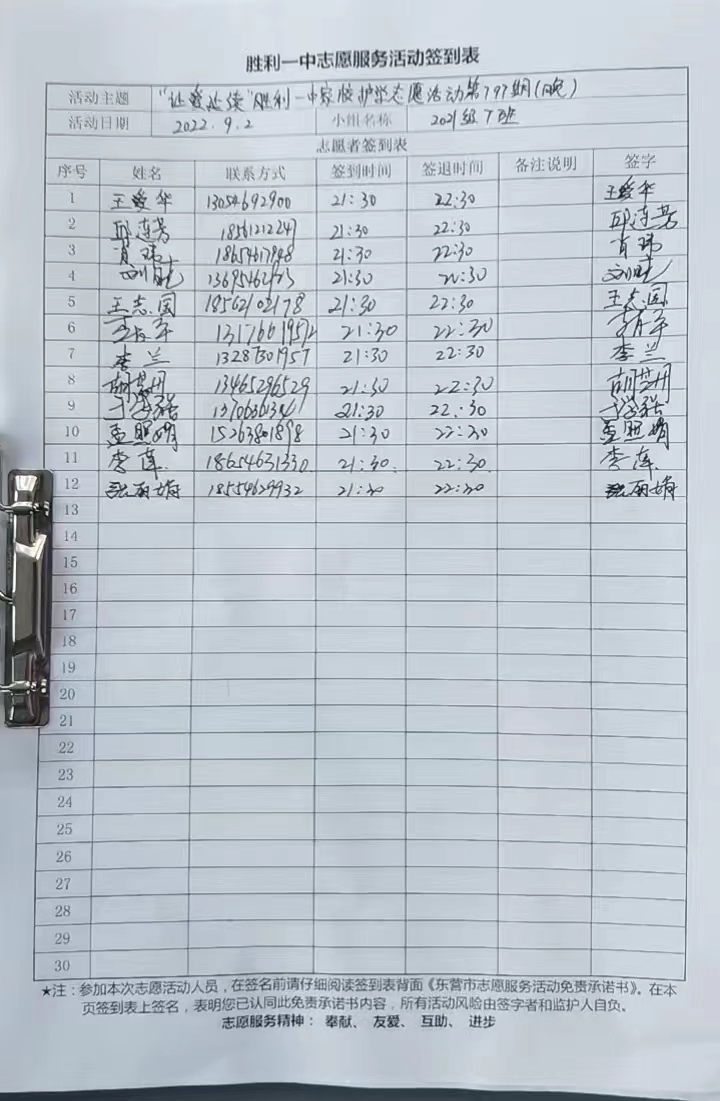 胜利一中志愿服务活动签到表
活动主题 "让爱延续"胜利一中家校护学志愿活动第797期(晚)
活动日期 2022.9.2 小组名称 2021级7班
志愿者签到表
序号 姓名 联系方式 签到时间 签退时间 备注说明 签字
1 王爱华 13054692900 21:30 22:30 王爱华
2 邱连芳 18561212247 21:30 22:30 邱连芳
3 肖玮 18654617948 21:30 22:30 肖玮
4 刘晓 21:30 22:30 刘晓
5 王志国 18562102178 21:30 22:30 王志国
6 21:30 22:30
7 李兰 13287301957 21:30 22:30 李兰
8 13465296529 21:30 22:30
9 21:30 22:30
10 孟照娟 15263801898 21:30 22:30 孟照娟
11 李莲 18654631330 21:30 22:30 李莲
12 张丽娟 18554629932 21:30 22:30 张丽娟
13
14
15
16
17
18
19
20
21
22
23
24
25
26
27
28
29
30
★注:参加本次志愿活动人员,在签名前请仔细阅读签到表背面《东营市志愿服务活动免责承诺书》。在本
页签到表上签名,表明您已认同此免责承诺书内容,所有活动风险由签字者和监护人自负。
志愿服务精神: 奉献、 友爱、 互助、 进步